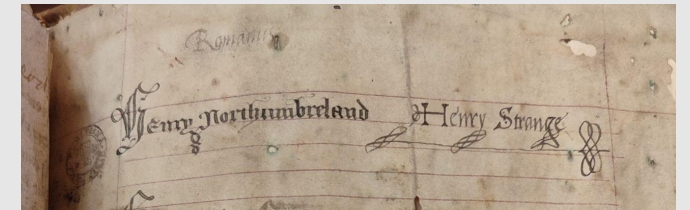 Romanus
Henry Northumbreland Henry Strange